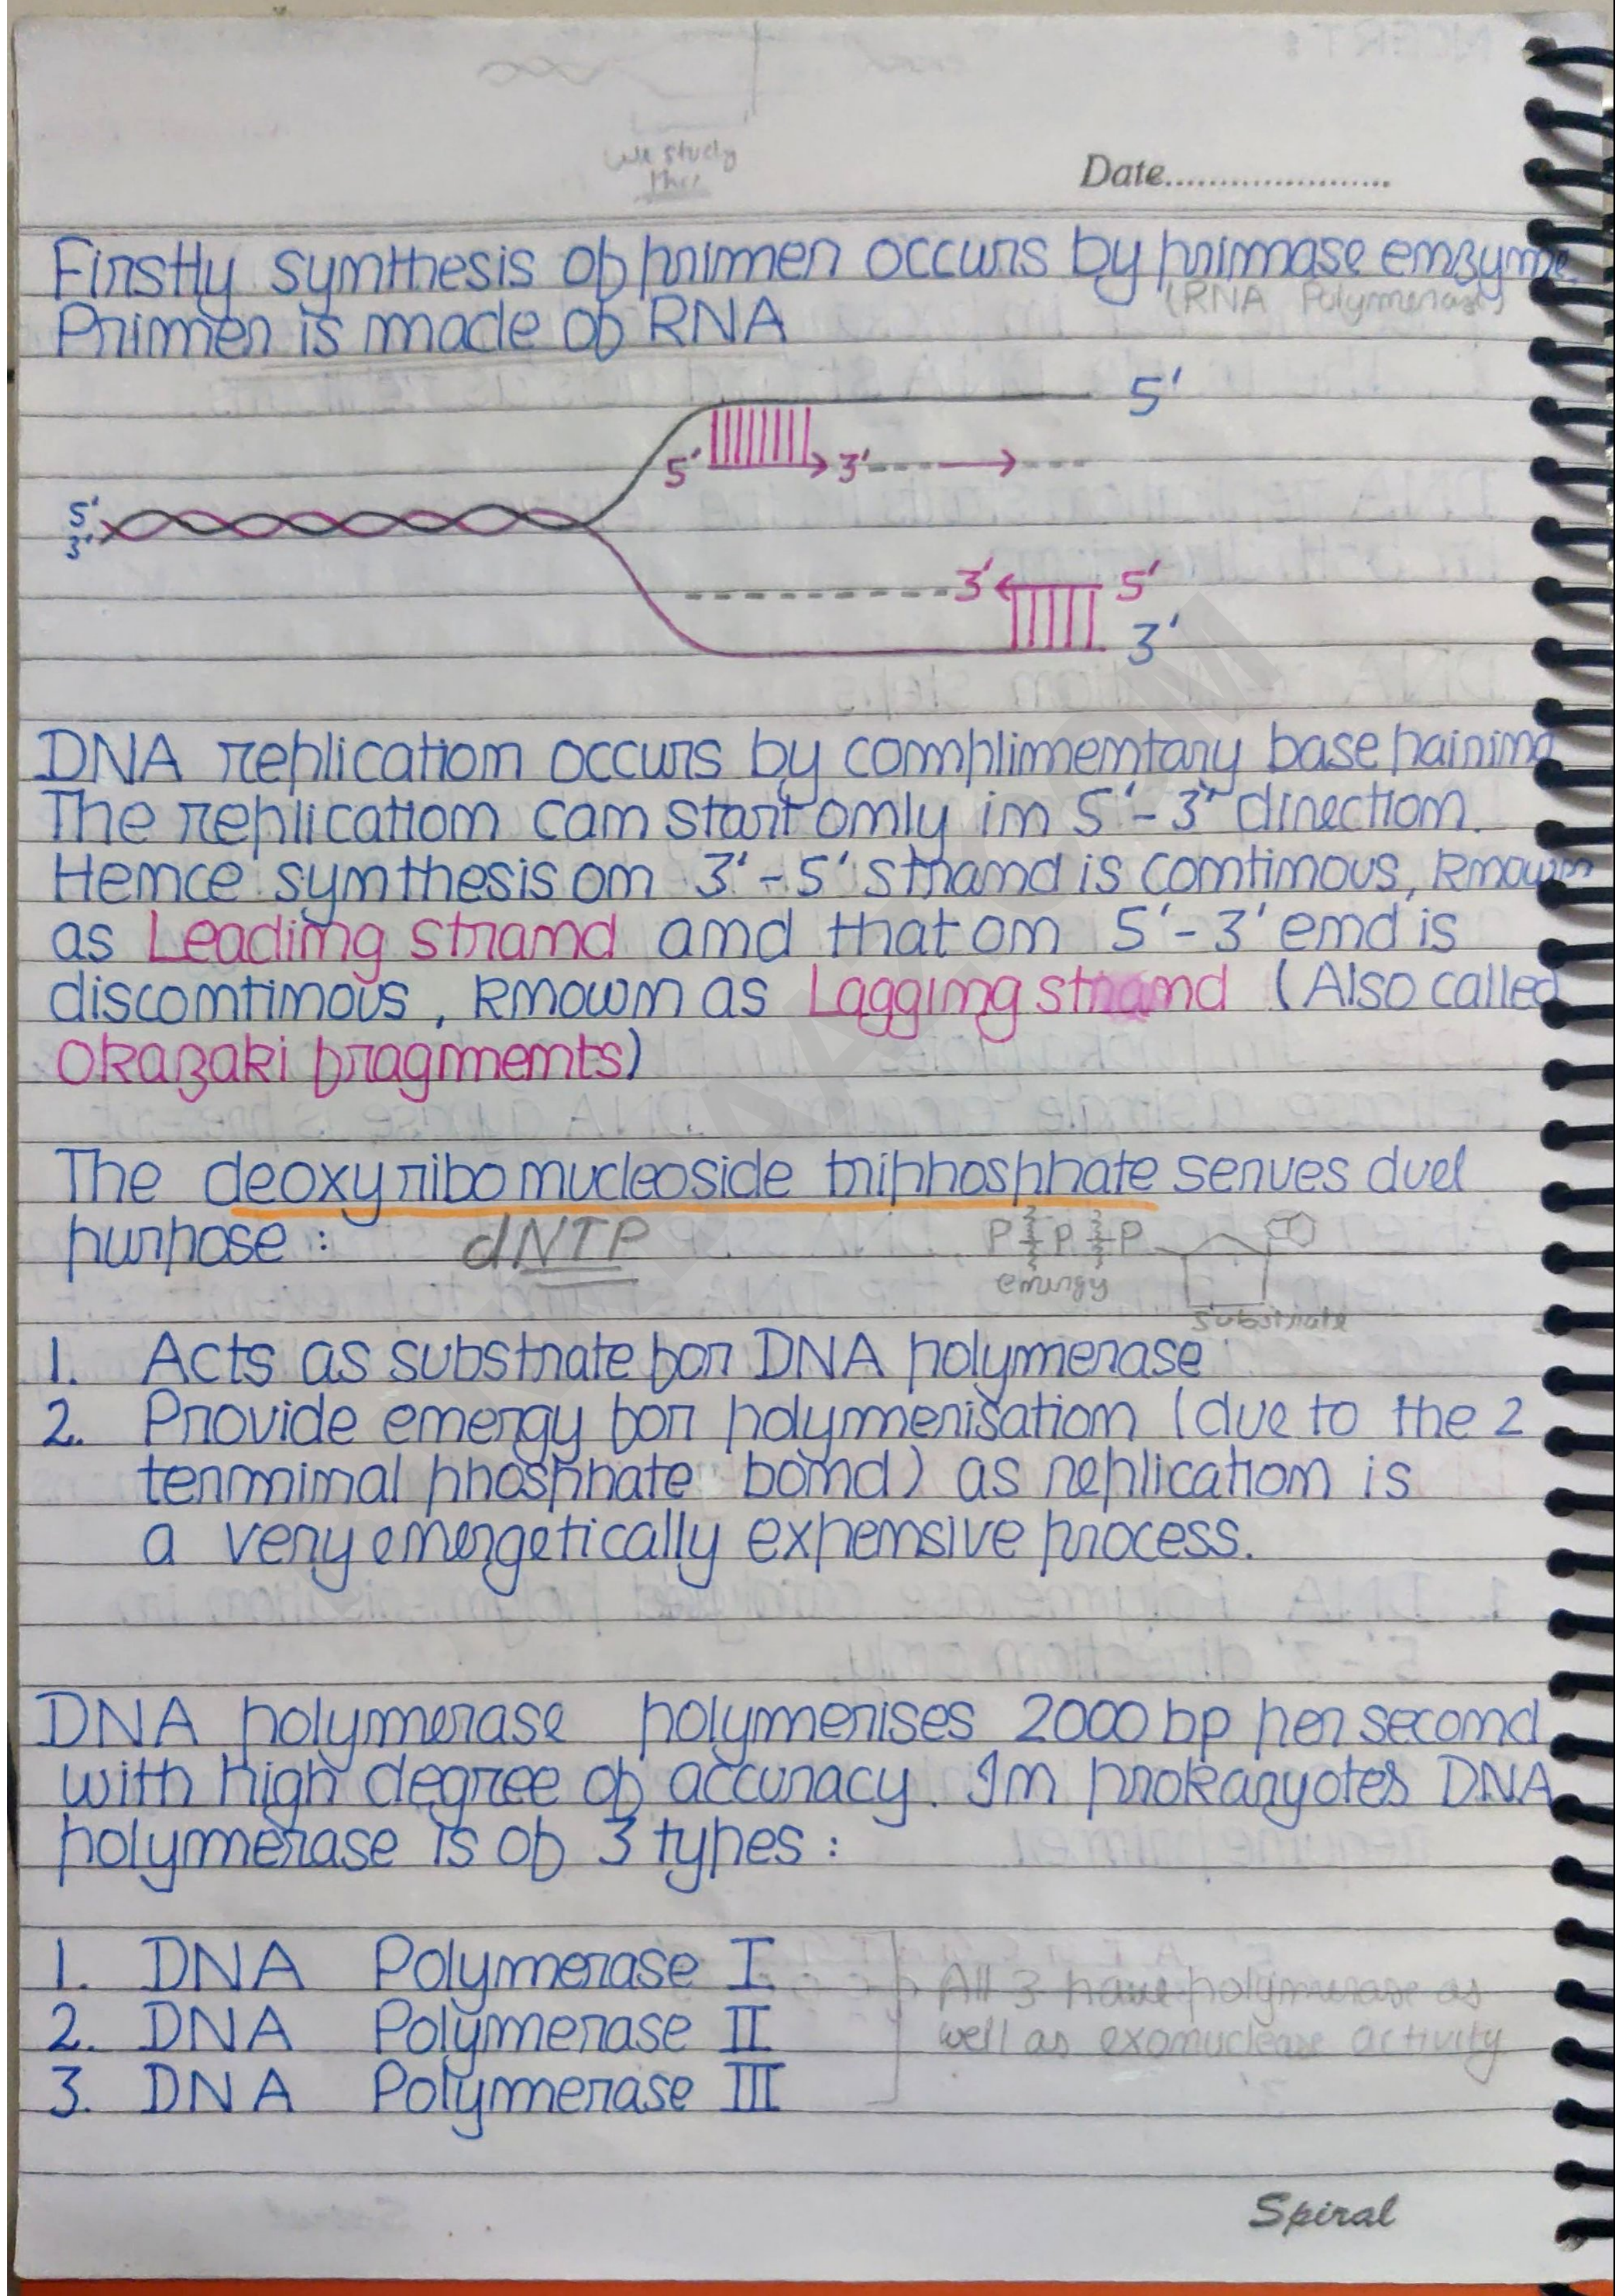 We study
this
Date......................
Firstly synthesis of primer occurs by primase enzyme
(RNA Polymerase)
Primer is made of RNA
5'
5' 3'
5'
3'
3' 5'
3'
DNA replication occurs by complimentary base pairing
The replication can start only in 5'-3' direction.
Hence synthesis on 3'-5' strand is continous, known
as Leading strand and that on 5'-3' end is
discontinous, known as Lagging strand (Also called
Okazaki fragments)
The deoxyribo nucleoside triphosphate serves duel
purpose : dNTP P P P
energy
substrate
1. Acts as substrate for DNA polymerase
2. Provide energy for polymerisation (due to the 2
terminal phosphate bond) as replication is
a very energetically expensive process.
DNA polymerase polymerises 2000 bp per second
with high degree of accuracy. In prokaryotes DNA
polymerase is of 3 types :
1. DNA Polymerase I
2. DNA Polymerase II
3. DNA Polymerase III
All 3 have polymerase as
well as exonuclease activity
Spiral